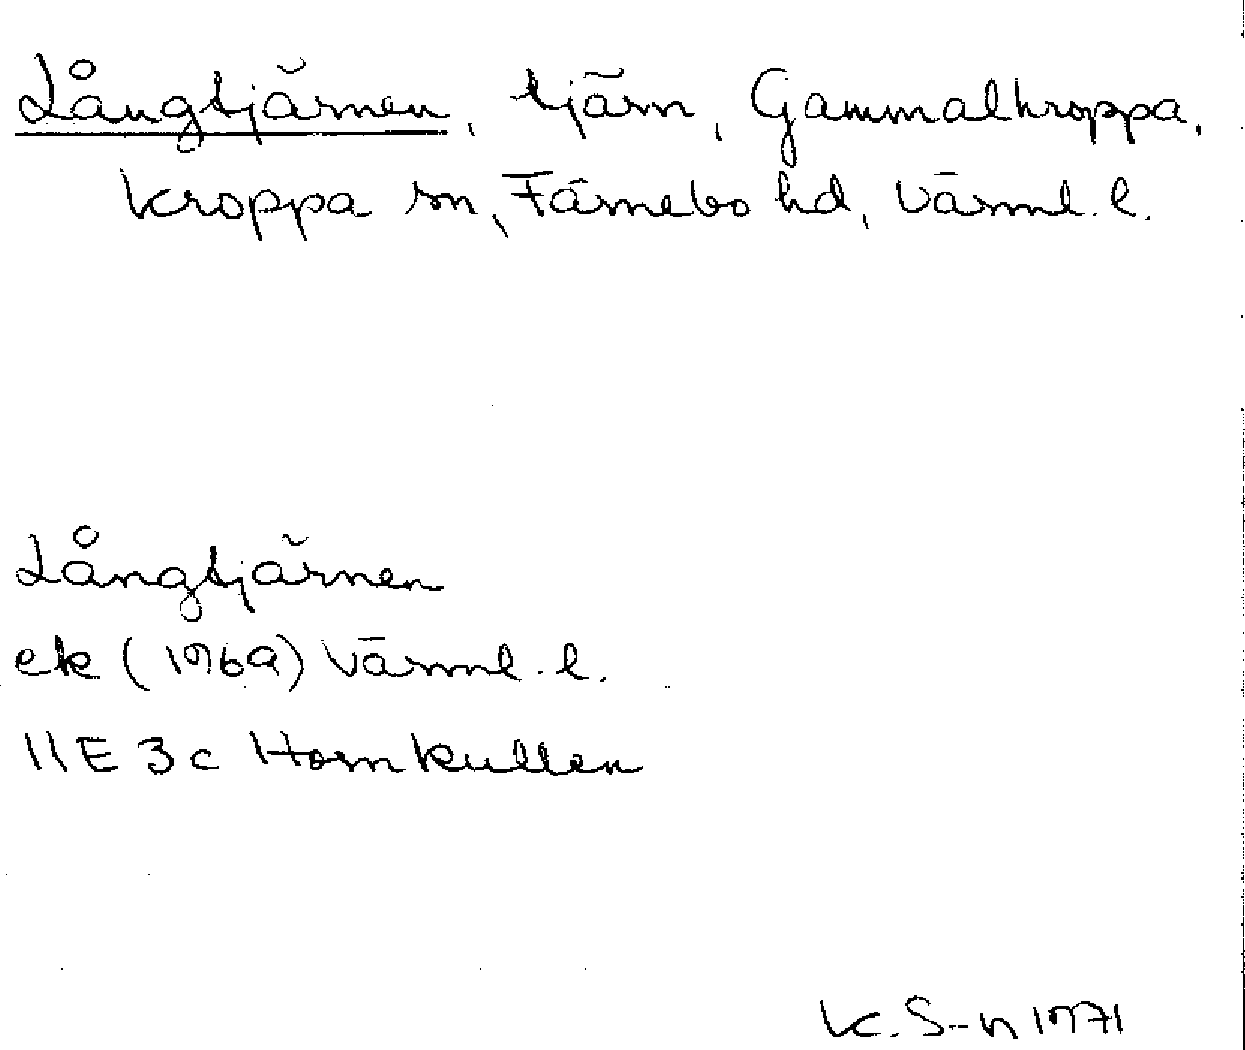 Långtjärnen, tjärn, Gammalkroppa,
Kroppa sn, Färnebo hd, Värml. l.
Långtjärnen
ek (1969) Värml. l.
11E 3c Hornkullen
K. S-n 1971